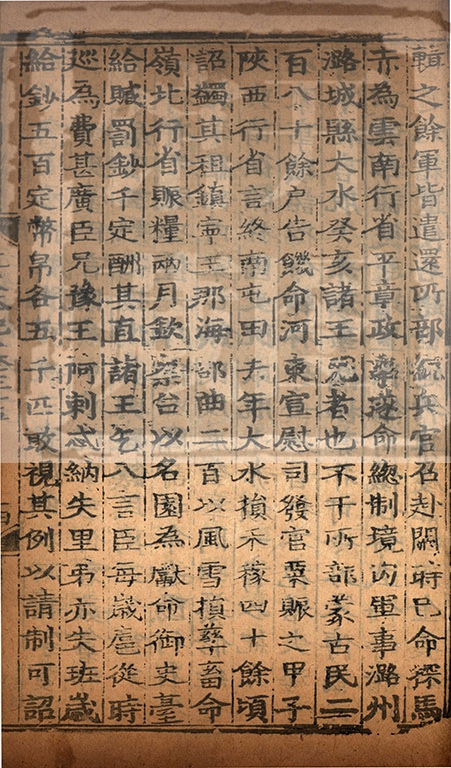 輯之餘軍皆遣還所部統兵官召赴闕時已命探馬
赤為雲南行省平章政事遂命總制境內軍事潞州
潞城縣大水癸亥諸王者也不干所部蒙古民二
百八十餘户告饑命河東宣慰司發官粟賑之甲子
陝西行省言終南屯田去年大水損禾稼四十餘頃
詔蠲其租鎮寧王那海部曲二百以風雪損孳畜命
嶺北行省賑糧兩月欽察台以名園為獻命御史臺
給贓罰鈔千定酬其直諸王乞八言臣每歲扈從時
巡為費甚廣臣兄豫王阿剌忒納失里弟亦失班歲
給鈔五百定幣帛各五千匹敢視其例以請制可詔